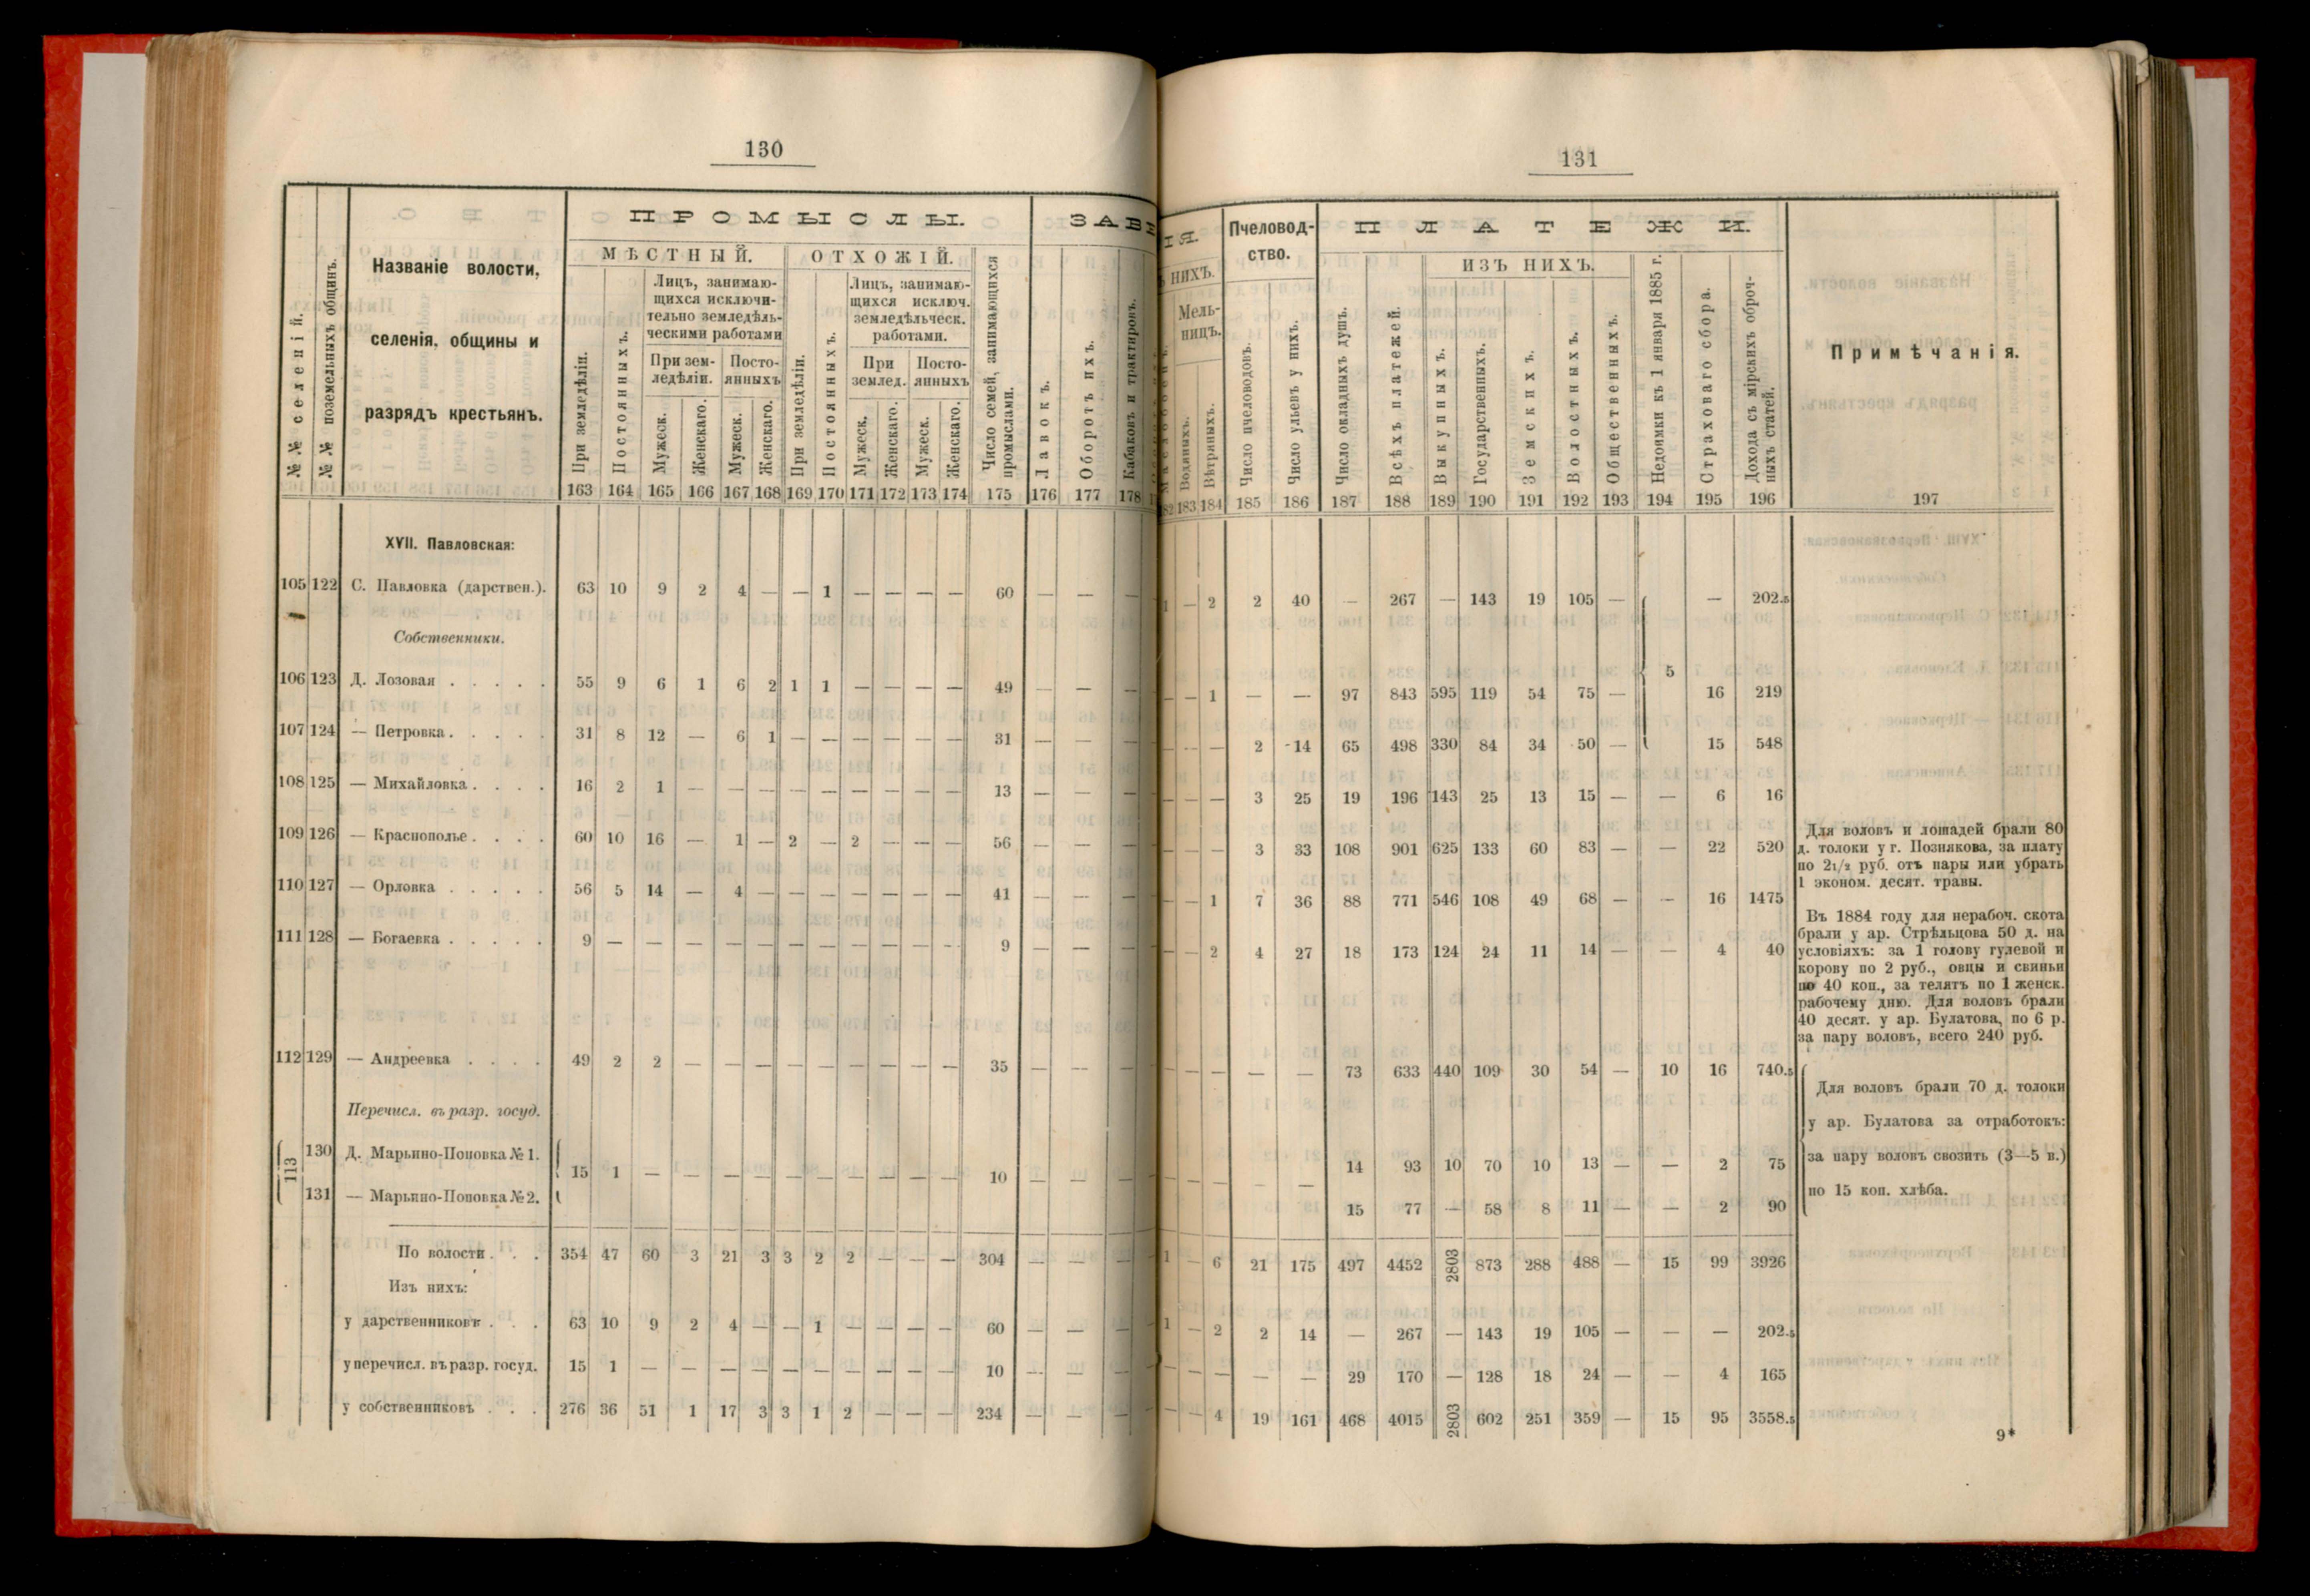 130
ПРОМЫСЛЫ.
МѢСТНЫЙ.
ОТХОЖІЙ.
№№ селеній.
№№ поземельныхъ общинъ.
Названіе волости,
селенія, общины и
разрядъ крестьянъ.
При земледѣліи.
Постоянныхъ.
Лицъ, занимаю-
щихся исключи-
тельно земледѣль-
ческими работами
При зем-
ледѣліи.
Посто-
янныхъ
Мужеск.
Женскаго.
Мужеск.
Женскаго.
При земледѣліи.
Постоянныхъ.
Лицъ, занимаю-
щихся исключ.
земледѣльческ.
работами.
При
землед.
Посто-
янныхъ
Мужеск.
Женскаго.
Мужеск.
Женскаго.
Число семей, занимающихся
промыслами.
Лавокъ.
Оборотъ ихъ.
Кабаковъ и трактировъ.
163 164 165 166 167 168 169 170 171 172 173 174 175 176 177 178
XVII. Павловская:
105 122 С. Павловка (дарствен.). 63 10 9 2 4 — — 1 — — — — 60 — — —
Собственники.
106 123 Д. Лозовая . . . . . 55 9 6 1 6 2 1 1 — — — — 49 — — —
107 124 — Петровка . . . . . 31 8 12 — 6 1 — — — — — — 31 — — —
108 125 — Михайловка . . . . 16 2 1 — — — — — — — — — 13 — — —
109 126 — Краснополье . . . . 60 10 16 — 1 — 2 — 2 — — — 56 — — —
110 127 — Орловка . . . . . 56 5 14 — 4 — — — — — — — 41 — — —
111 128 — Богаевка . . . . . 9 — — — — — — — — — — — 9 — — —
112 129 — Андреевка . . . . 49 2 2 — — — — — — — — — 35 — — —
Перечисл. въ разр. госуд.
113
130 Д. Марьино-Поповка № 1.
15 1 — — — — — — — — — — 10 — — —
131 — Марьино-Поповка № 2.
По волости . . . 354 47 60 3 21 3 3 2 2 — — — 304 — — —
Изъ нихъ:
у дарственниковъ . . . 63 10 9 2 4 — — 1 — — — — 60 — — —
у перечисл. въ разр. госуд. 15 1 — — — — — — — — — — 10 — — —
у собственниковъ . . . 276 36 51 1 17 3 3 1 2 — — — 234 — — —
131
нихъ.
Мель-
ницъ.
Водяныхъ.
Вѣтряныхъ.
Пчеловод-
ство.
Число пчеловодовъ.
Число ульевъ у нихъ.
ПЛАТЕЖИ.
Число окладныхъ душъ.
Всѣхъ платежей.
ИЗЪ НИХЪ.
Выкупныхъ.
Государственныхъ.
Земскихъ.
Волостныхъ.
Общественныхъ.
Недоимки къ 1 января 1885 г.
Страховаго сбора.
Дохода съ мірскихъ оброч-
ныхъ статей.
Примѣчанія.
183 184 185 186 187 188 189 190 191 192 193 194 195 196 197
1 — 2 2 40 — 267 — 143 19 105 — — 202.5
5
— — 1 — — 97 843 595 119 54 75 — 16 219
— — — 2 14 65 498 330 84 34 50 — 15 548
— — — 3 25 19 196 143 25 13 15 — — 6 16
— — — 3 33 108 901 625 133 60 83 — — 22 520
— — 1 7 36 88 771 546 108 49 68 — — 16 1475
— — 2 4 27 18 173 124 24 11 14 — — 4 40
— — — — — 73 633 440 109 30 54 — 10 16 740.5
14 93 10 70 10 13 — — 2 75
— — — — —
15 77 — 58 8 11 — — 2 90
1 — 6 21 175 497 4452 2803 873 288 488 — 15 99 3926
1 — 2 2 14 — 267 — 143 19 105 — — — 202.5
— — — — — 29 170 — 128 18 24 — — 4 165
— — 4 19 161 468 4015 2803 602 251 359 — 15 95 3558.5
Для воловъ и лошадей брали 80
д. толоки у г. Познякова, за плату
по 2 1/2 руб. отъ пары или убрать
1 эконом. десят. травы.
Въ 1884 году для нерабоч. скота
брали у ар. Стрѣльцова 50 д. на
условіяхъ: за 1 голову гулевой и
корову по 2 руб., овцы и свиньи
по 40 коп., за телятъ по 1 женск.
рабочему дню. Для воловъ брали
40 десят. у ар. Булатова, по 6 р.
за пару воловъ, всего 240 руб.
Для воловъ брали 70 д. толоки
у ар. Булатова за отработокъ:
за пару воловъ свозить (3—5 в.)
по 15 коп. хлѣба.
9*